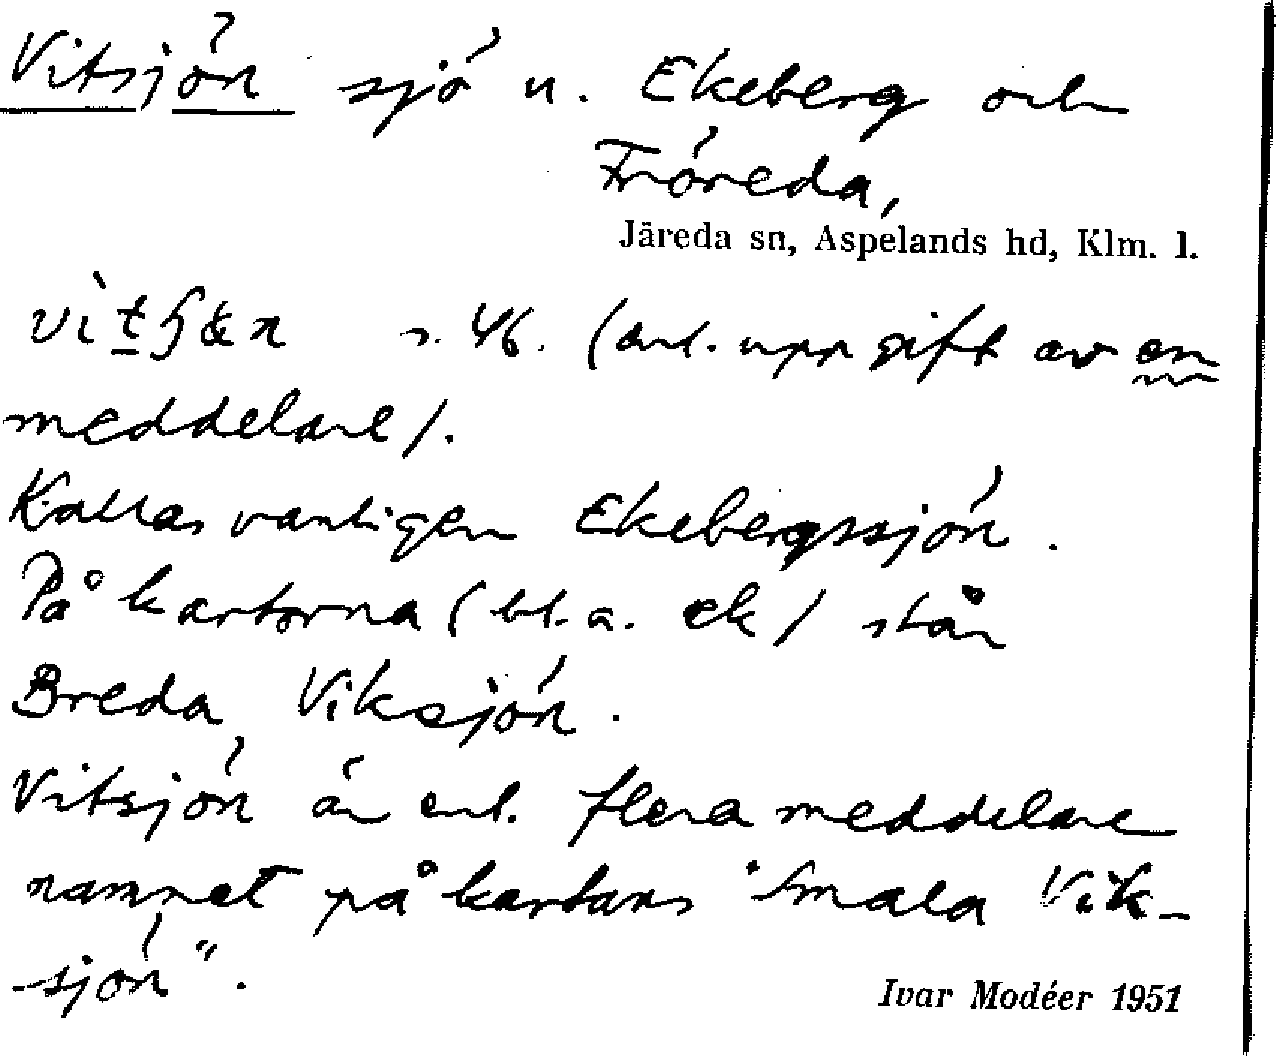 Vitsjön sjö n. Ekeberg och
Fröreda,
Järeda sn, Aspelands hd, Klm. l.
s. 46. (enl. uppgift av en
meddelare).
Kallas vanligen Ekebergssjön.
På kartorna (bl.a. ek) står
Breda Viksjön.
Vitsjön är enl. flera meddelare
namnet på kartans "Smala Vik-
-sjön".
Ivar Modéer 1951